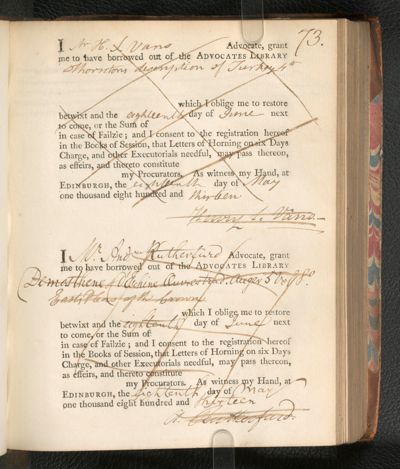 73.
I Mr H. J. Vans Advocate, grant
me to have borrowed out of the ADVOCATES LIBRARY
Thorntons description of Turkey 4to
which I oblige me to restore
betwixt and the eighteenth day of June next
to come, or the Sum of
in case of Failzie; and I consent to the registration hereof
in the Books of Session, that Letters of Horning on six Days
Charge, and other Executorials needful, may pass thereon,
as effeirs, and thereto constitute
my Procurators. As witness my Hand, at
EDINBURGH, the eighteenth day of May
one thousand eight hundred and thirteen
Vans
I Mr. Andw Rutherfurd Advocate, grant
me to have borrowed out of the ADVOCATES LIBRARY
Demosthenes
of the Crown
which I oblige me to restore
betwixt and the eighteenth day of June next
to come, or the Sum of
in case of Failzie; and I consent to the registration hereof
in the Books of Session, that Letters of Horning on six Days
Charge, and other Executorials needful, may pass thereon,
as effeirs, and thereto constitute
my Procurators. As witness my Hand, at
EDINBURGH, the eighteenth day of May
one thousand eight hundred and thirteen
A. Rutherfurd.